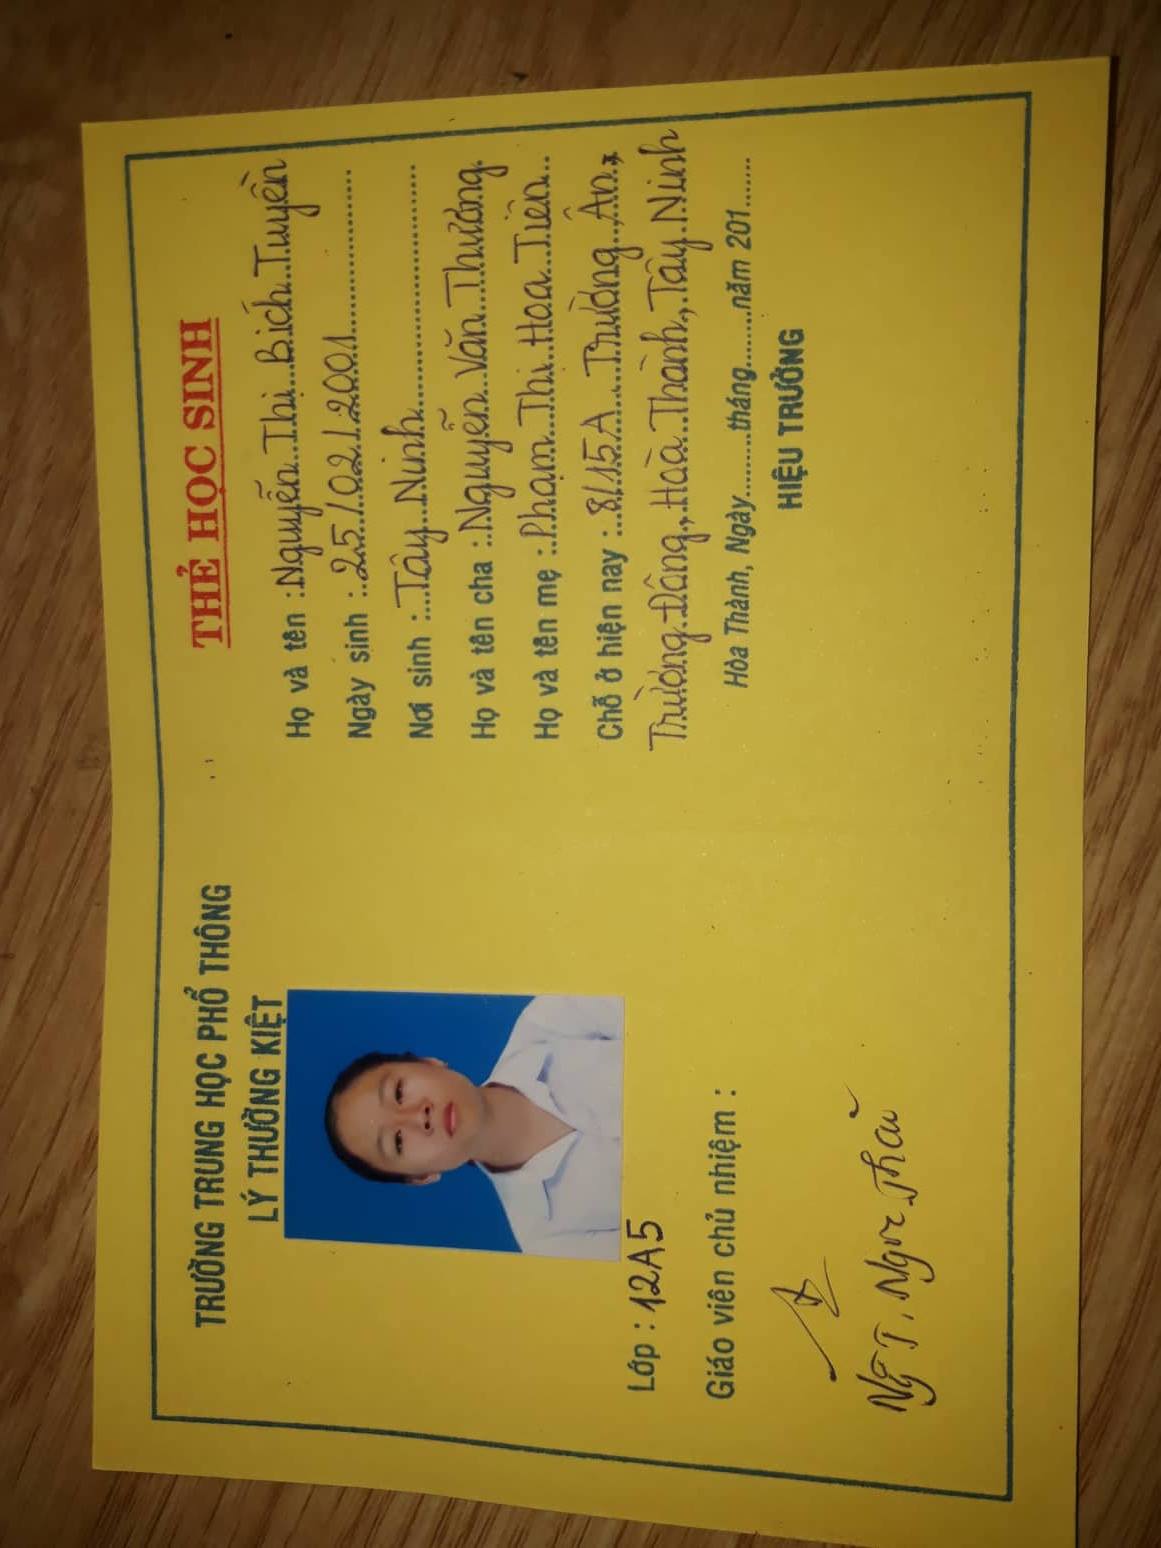 TRƯỜNG TRUNG HỌC PHỔ THÔNG
LÝ THƯỜNG KIỆT
Lớp : 12A5
Giáo viên chủ nhiệm :
Ng T. Ngọc Thái
THẺ HỌC SINH
Họ và tên : Nguyễn Thị Bích Tuyền
Ngày sinh : 25/02/2001
Nơi sinh : Tây Ninh
Họ và tên cha : Nguyễn Văn Thương
Họ và tên mẹ : Phạm Thị Hoa Tiên
Chỗ ở hiện nay : 8/15A Trường Ân,
Trường Đông, Hoà Thành, Tây Ninh
Hòa Thành, Ngày.........tháng.........năm 201.......
HIỆU TRƯỞNG